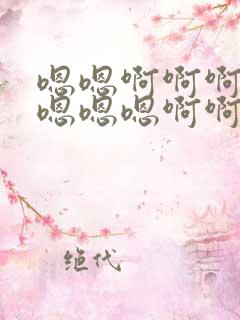 嗯嗯啊啊啊
嗯嗯嗯啊啊
绝代